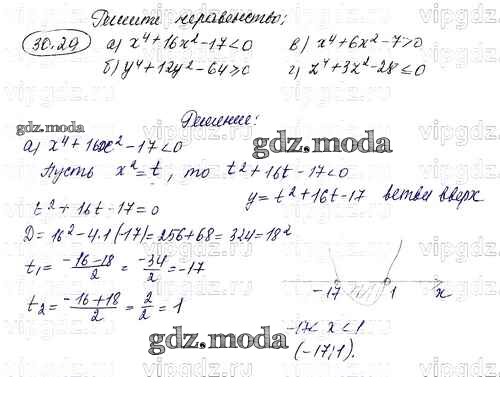 Решите неравенство:
30.29 а) x⁴+16x²-17<0 в) x⁴+6x²-7>0
б) y⁴+12y²-64>0 г) z⁴+3z²-28≤0
Решение:
gdz.moda
а) x⁴+16x²-17<0
gdz.moda
Пусть x²=t, то t²+16t-17<0
y=t²+16t-17 ветви вверх
t²+16t-17=0
D=16²-4·1(-17)=256+68=324=18²
t₁=(-16-18)/2=-34/2=-17
t₂=(-16+18)/2=2/2=1
-17 1 x
gdz.moda
-17<x<1
(-17;1).
gdz.moda
vipgdz.ru